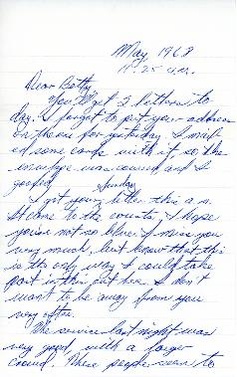 May 1968
11:25 a.m.
Dear Betty,
You'll get 2 letters to
day. I forgot to put your address
on the one for yesterday. I mail
ed some cards with it, so the
envelope was and I
goofed.
Sunday
I got your letter this a.m.
at the county, I hope
you're not so blue. I miss you
very much, but know that this
is the only way I could take
part in this out here. I don't
want to be away from you
very often.
The service last night was
very good, with a larger
crowd. These people seem to